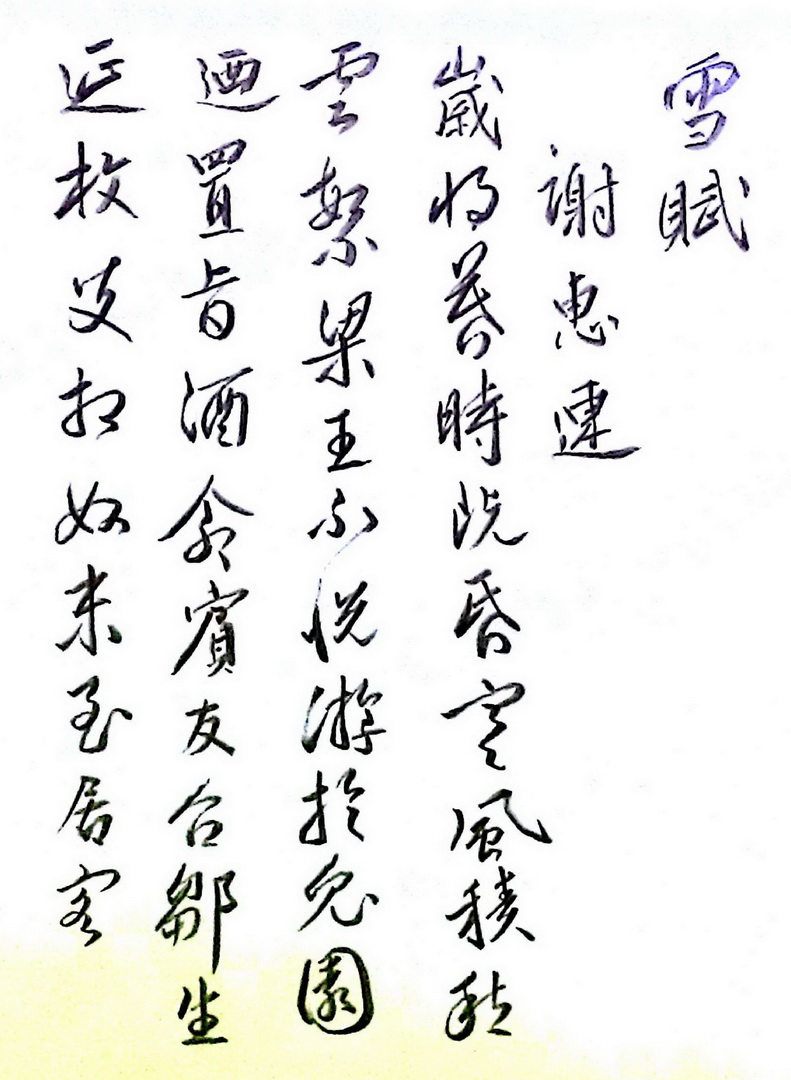 雪賦
謝惠連
歲將暮時既昏寒風積愁
雲繁梁王不悅游於兔園
迺置旨酒命賓友召鄒生
延枚叟相如末至居客